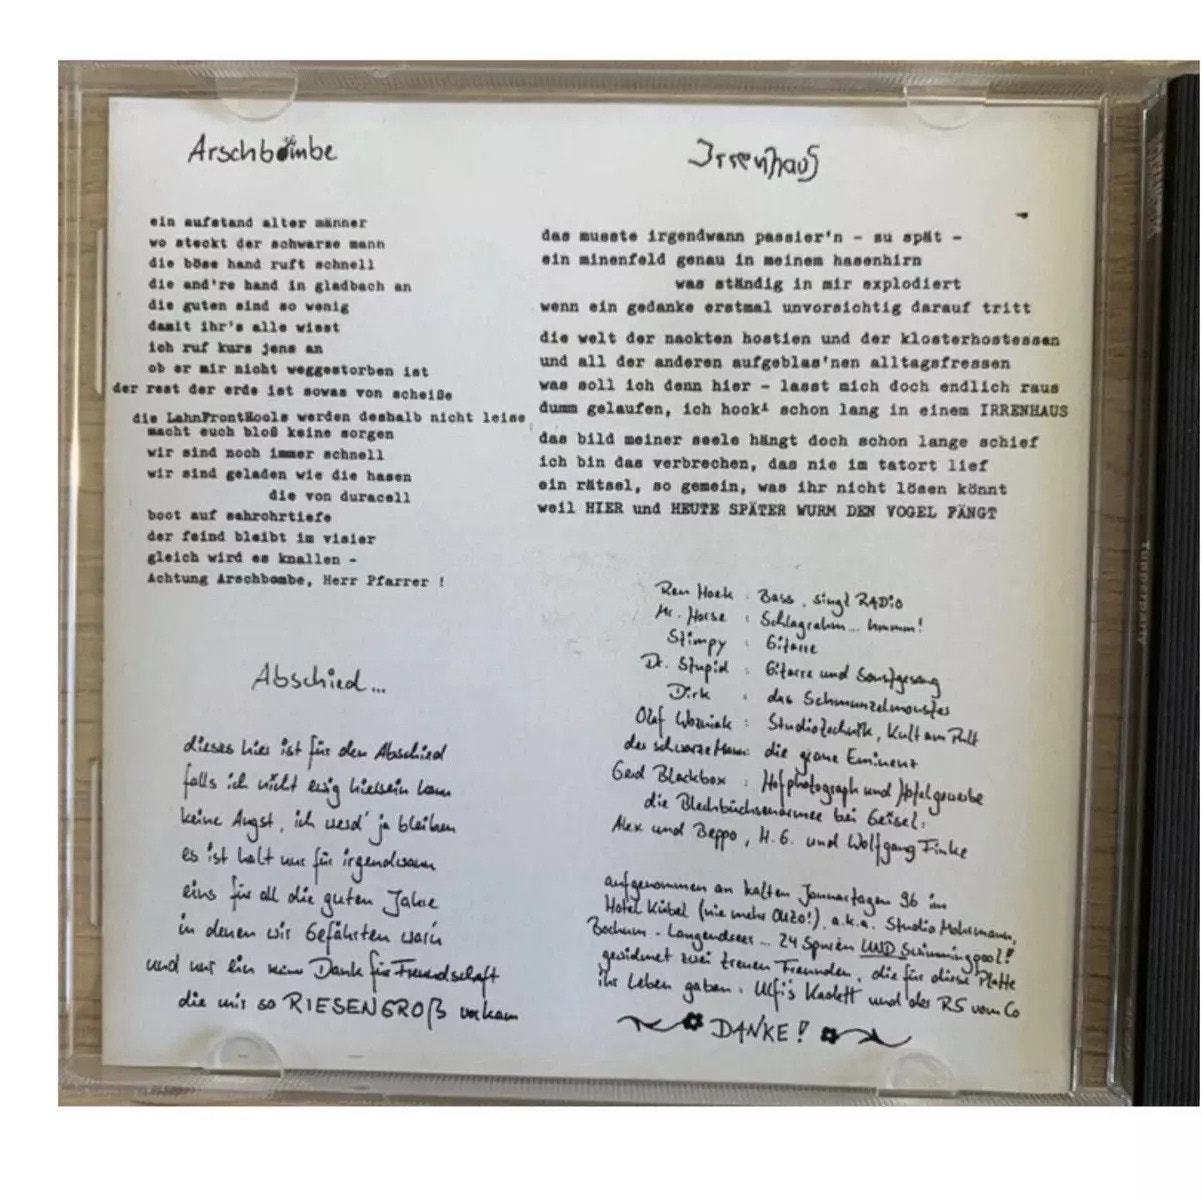 Arschbombe
ein aufstand alter männer
wo steckt der schwarze mann
die böse hand ruft schnell
die and're hand in gladbach an
die guten sind so wenig
damit ihr's alle wisst
ich ruf kurz jens an
ob er mir nicht weggestorben ist
der rest der erde ist sowas von scheiße
die LahnFrontHools werden deshalb nicht leise
macht euch bloß keine sorgen
wir sind noch immer schnell
wir sind geladen wie die hasen
die von duracell
boot auf sehrohrtiefe
der feind bleibt im visier
gleich wird es knallen -
Achtung Arschbombe, Herr Pfarrer !
Abschied...
dieses hier ist für den Abschied
falls ich nicht ewig hiersein kann
keine Angst, ich werd' ja bleiben
es ist halt nur für irgendwann
eins für all die guten Jahre
in denen wir Gefährten war'n
und nur ein Dank für Freundschaft
die mir so RIESENGROß vorkam
Irrenhaus
das musste irgendwann passier'n - zu spät -
ein minenfeld genau in meinem hasenhirn
was ständig in mir explodiert
wenn ein gedanke erstmal unvorsichtig darauf tritt
die welt der nackten hostien und der klosterhostessen
und all der anderen aufgeblas'nen alltagsfressen
was soll ich denn hier - lasst mich doch endlich raus
dumm gelaufen, ich hock' schon lang in einem IRRENHAUS
das bild meiner seele hängt doch schon lange schief
ich bin das verbrechen, das nie im tatort lief
ein rätsel, so gemein, was ihr nicht lösen könnt
weil HIER und HEUTE SPÄTER WURM DEN VOGEL FÄNGT
Ren Hoek : Bass, singt RADIO
Mr. Horse : Schlagrahm... hmmm!
Stimpy : Gitarre
Dr. Stupid : Gitarre und Sonstgesang
Dirk : das Schmunzelmonster
Olaf Wozniak : Studiotechnik, Kult am Pult
der schwarze Mann: die graue Eminenz
Gerd Blackbox : Hofphotograph und Apfelgewerbe
die Blechbüchsenarmee bei Geisel:
Alex und Beppo, H.G. und Wolfgang Finke
aufgenommen an kalten Januartagen 96 im
Hotel Kübel (nie mehr Ouzo!) a.k.a. Studio Mohrmann,
Bochum - Langendreer... 24 Spuren UND Swimmingpool!
gewidmet zwei treuen Freunden, die für diese Platte
ihr Leben gaben: Ulfi's Kadett und der RS vom Co
DANKE!
Tupperparty